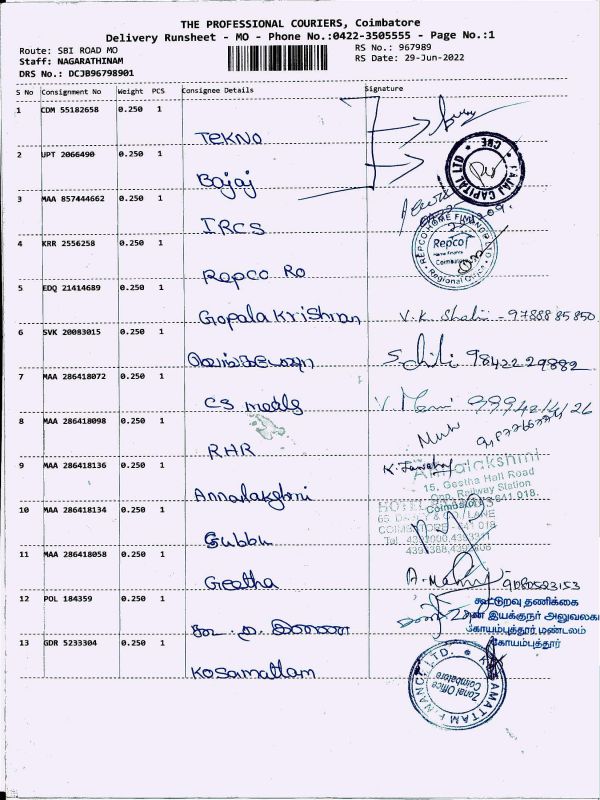 THE PROFESSIONAL COURIERS, Coimbatore
Delivery Runsheet - MO - Phone No.:0422-3505555 - Page No.:1
Route: SBI ROAD MO
RS No.: 967989
Staff: NAGARATHINAM
RS Date: 29-Jun-2022
DRS No.: DCJB96798901
S No Consignment No Weight PCS Consignee Details Signature
1 CDM 55182658 0.250 1
TEKNO
2 UPT 2066490 0.250 1
Bajaj
BAJAJ CAPITAL LTD * CBE *
3 MAA 857444662 0.250 1
IRCS
4 KRR 2556258 0.250 1
REPCO HOME FINANCE LTD
Repco
Home Finance
Coimbatore
Regional Office
Repco Ro
5 EDQ 21414689 0.250 1
Gopala Krishnan V.K. Shalini - 97888 85 850
6 SVK 20083015 0.250 1
98422 29882
7 MAA 286418072 0.250 1
CS meals
8 MAA 286418098 0.250 1
RHR
9 MAA 286418136 0.250 1
Annalakshmi
Annalakshmi
15, Geetha Hall Road
Opp. Railway Station
Coimbatore-641 018.
10 MAA 286418134 0.250 1
HOTEL
65,
LANE
COIMBATORE - 641 018
Subbu
11 MAA 286418058 0.250 1
Geetha 9080523153
12 POL 184359 0.250 1
கூட்டுறவு தணிக்கை
இயக்குநர் அலுவலக
கோயம்புத்தூர் மண்டலம்
கோயம்புத்தூர்
13 GDR 5233304 0.250 1
Kosamattam
KOSAMATTAM FINANCE LTD.
Zonal Office
Coimbatore